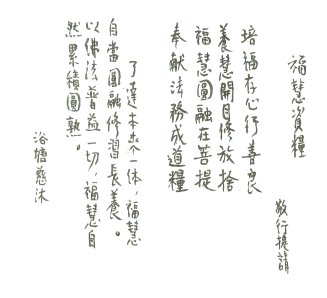 福慧資糧
敬行提韻
培福存心行善良
養慧開目修放捨
福慧圓融在菩提
奉献法務成道糧
了達本來一体，福慧
自當圓融修習長養。
以佛法普益一切，福慧自
然累積圓熟。
浴塘慈沐